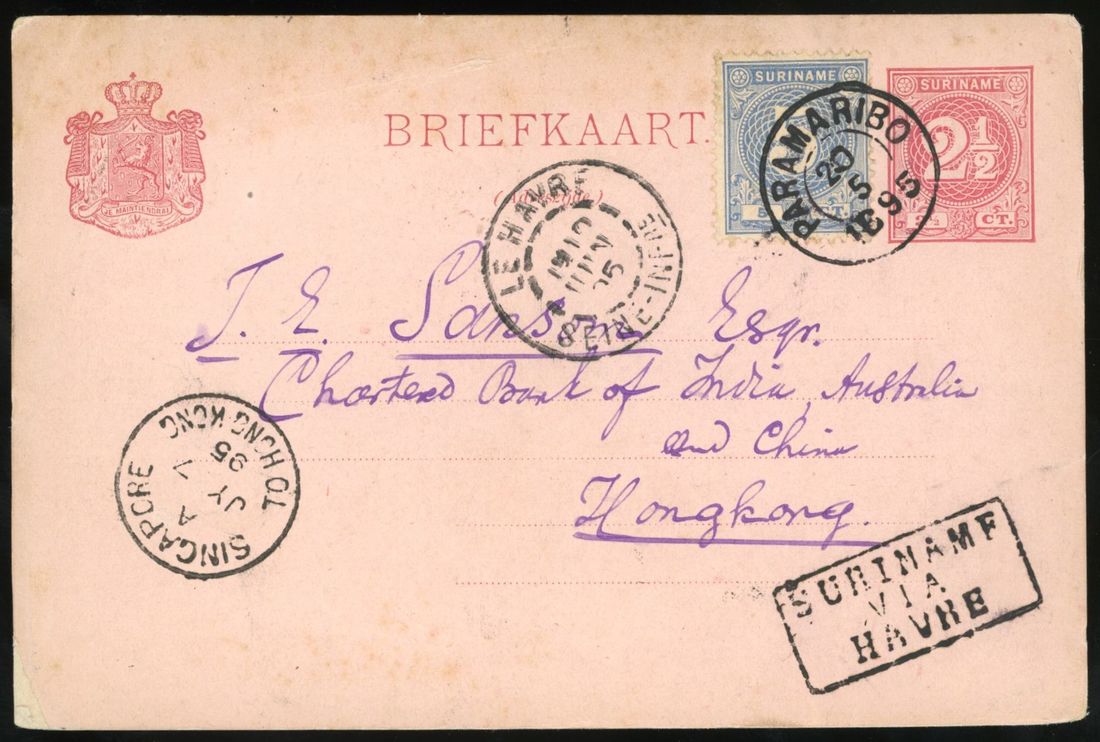 SURINAME
SURINAME
BRIEFKAART.
2½
2½ CT.
JE MAINTIENDRAI
PARAMARIBO
20
5
1895
LE HAVRE
SEINE-INFRE
JUIN
95
J. E. Esqr.
Chartered Bank of India, Australia
and China
Hongkong.
SINGAPORE
TO HONG-KONG
A
JY 7
95
SURINAME
VIA
HAVRE